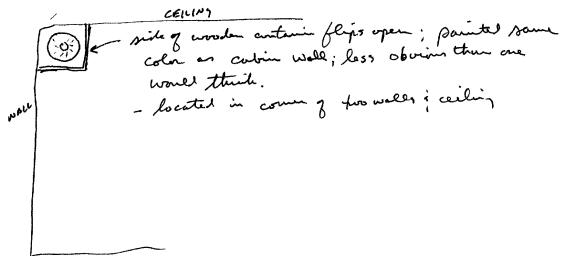 CEILING
side of wooden container flips open; painted same
color as cabin wall; less obvious than one
would think.
WALL
- located in corner of two walls & ceiling